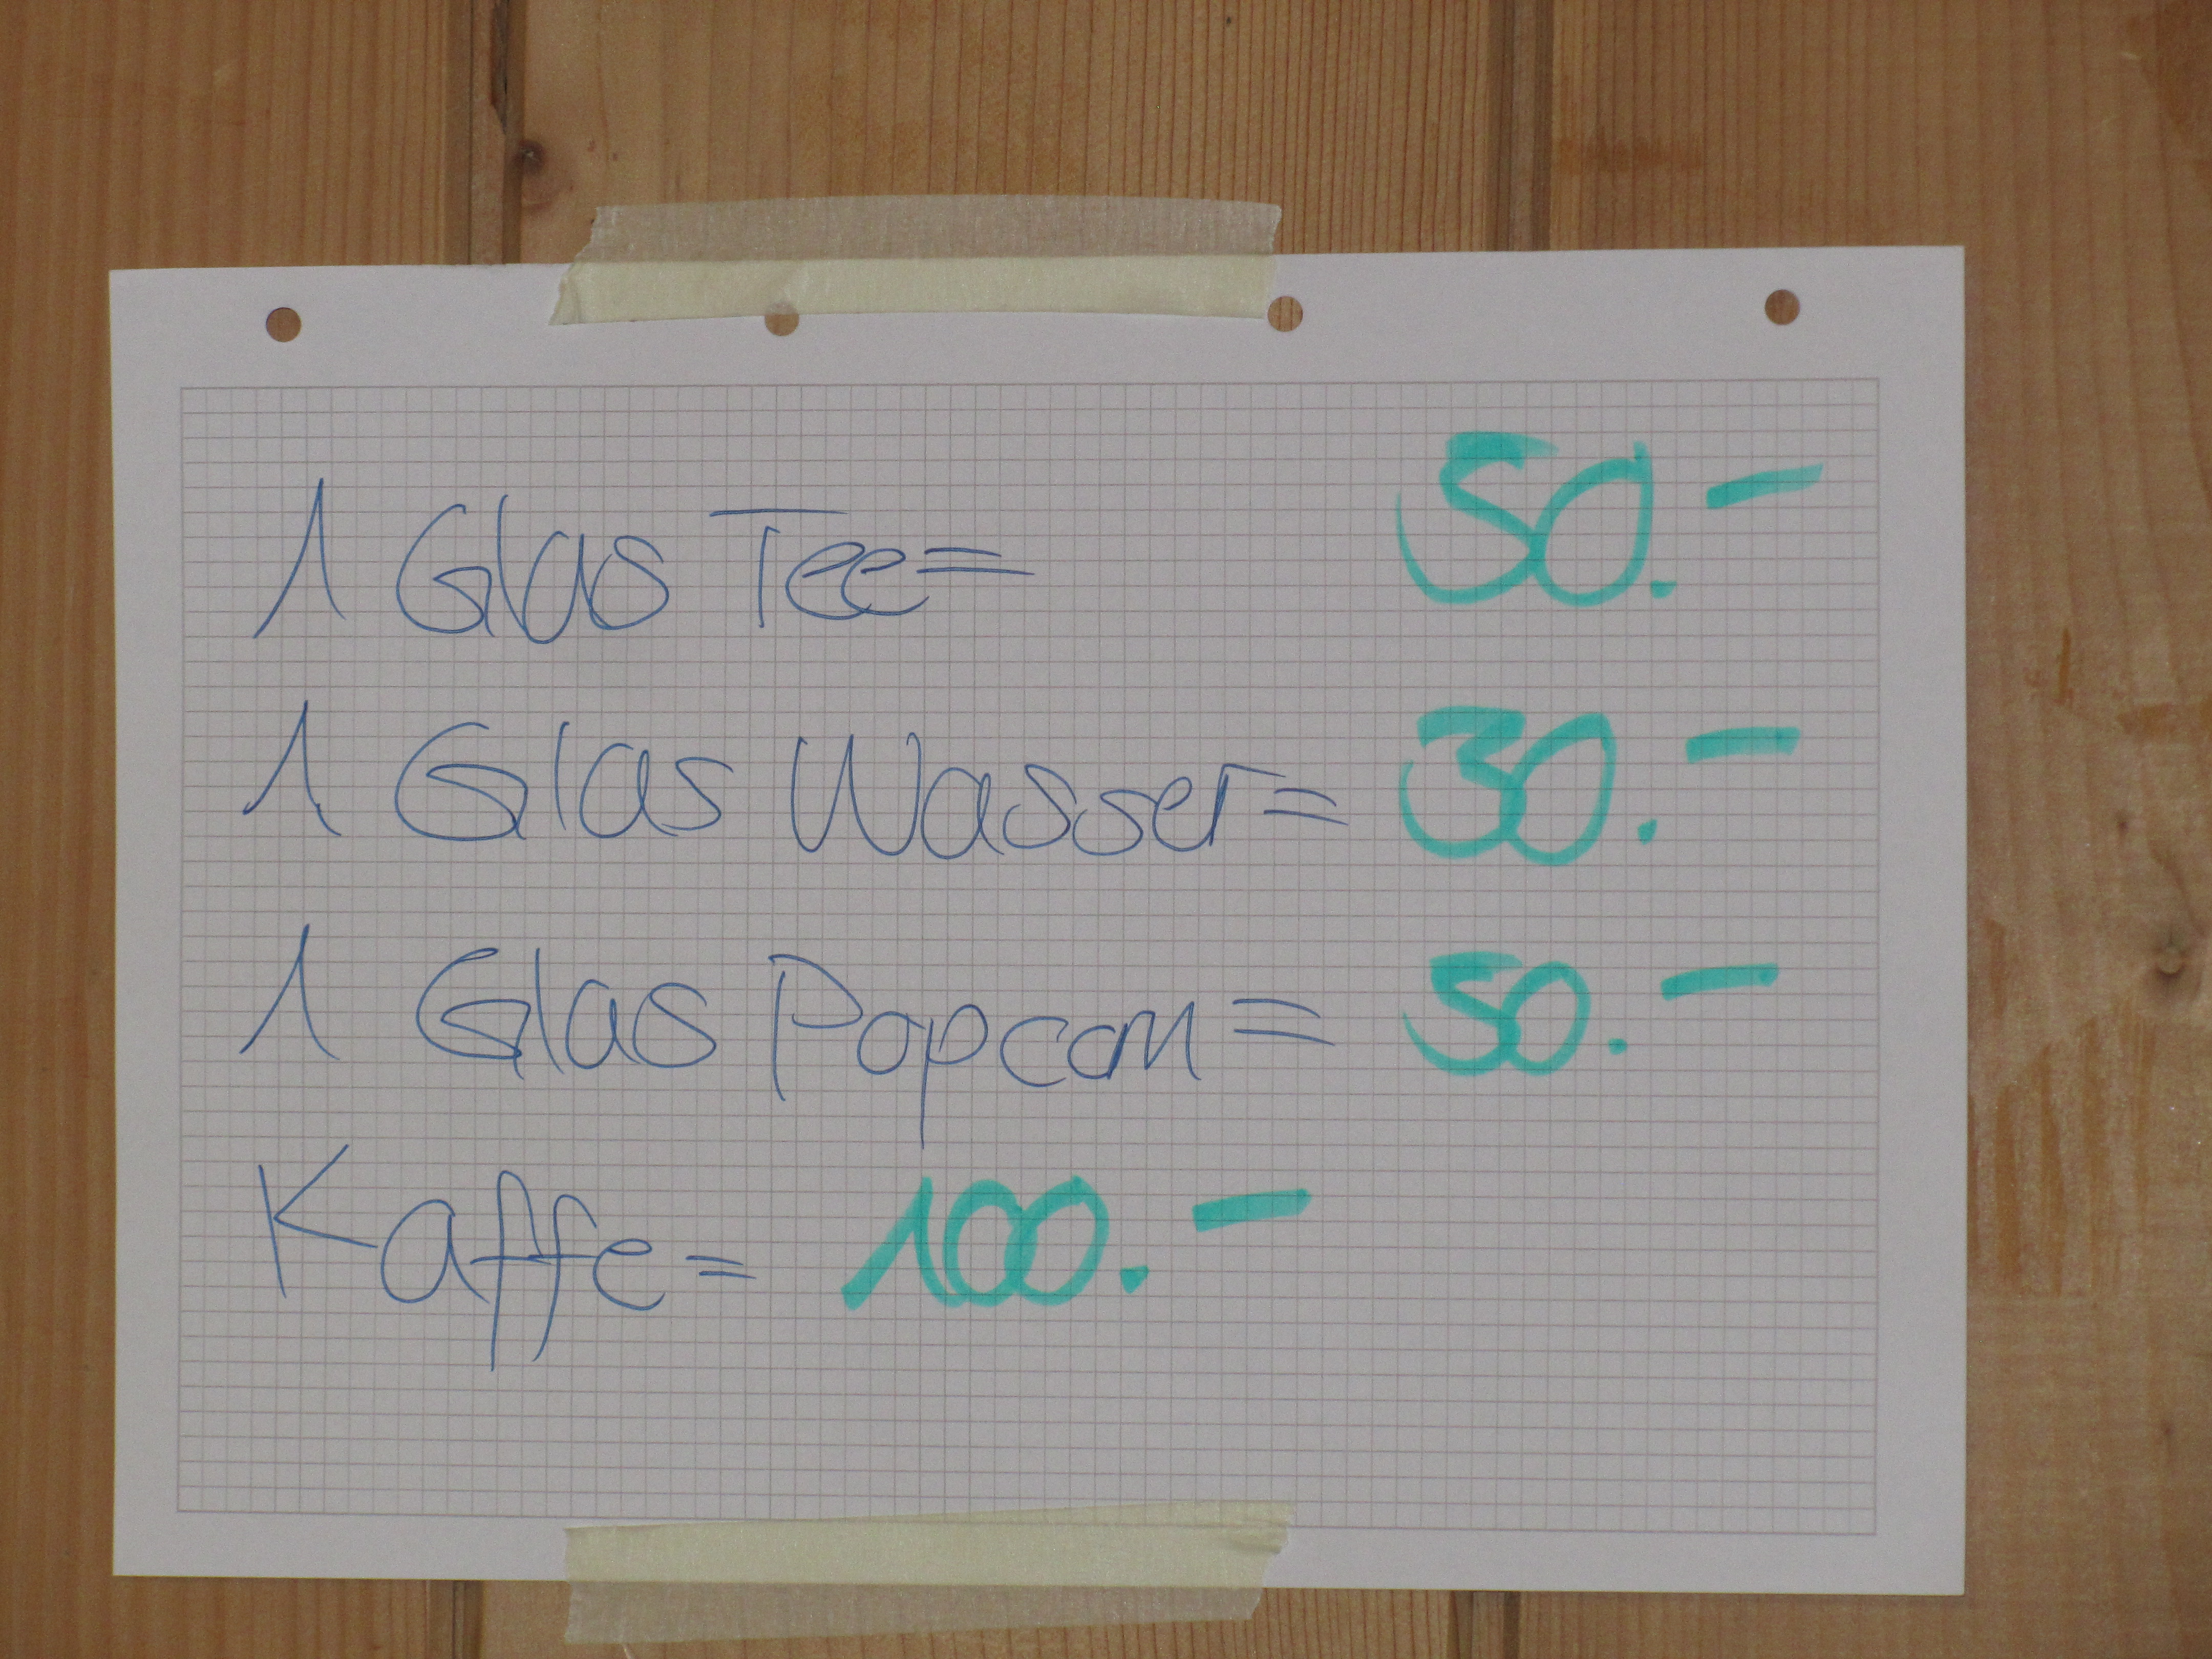 1 Glas Tee= 50.-
1 Glas Wasser= 30.-
1 Glas Popcorn= 50.-
Kaffe= 100.-